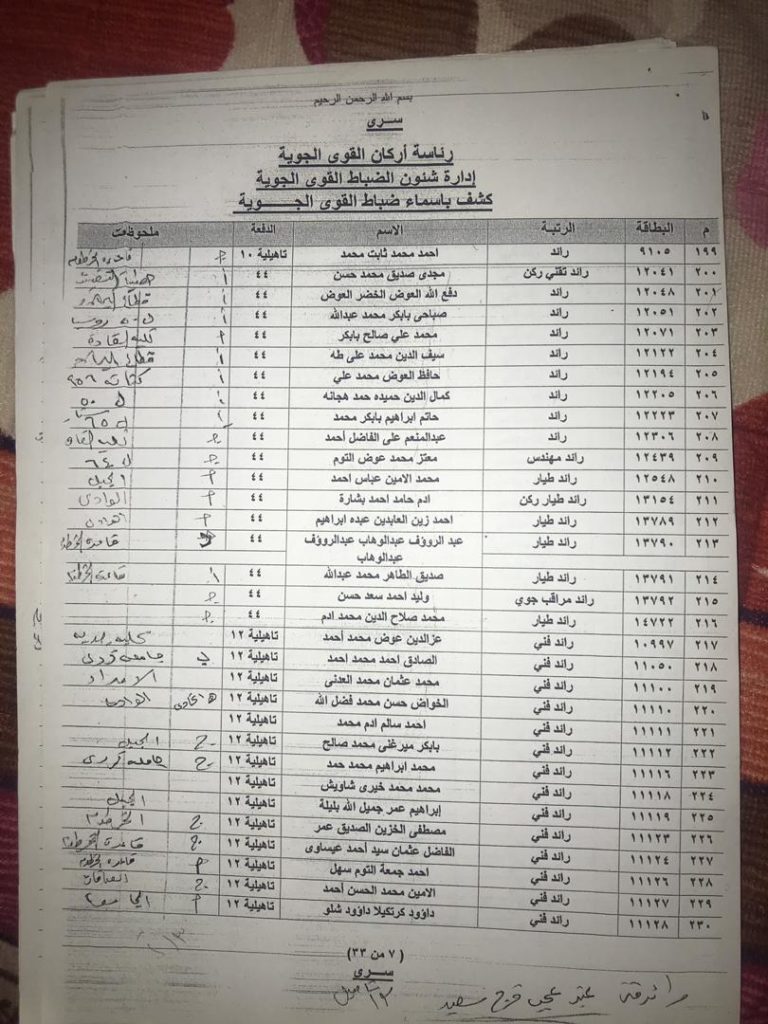 بسم الله الرحمن الرحيم
سرى
رئاسة أركان القوى الجوية
إدارة شئون الضباط القوى الجوية
كشف باسماء ضباط القوى الجـــــوية
م البطاقة الرتبة الاسم الدفعة ملحوظات
١٩٩ ٩١٠٥ رائد احمد محمد ثابت محمد تاهيلية ١٠ ح قاعدة الخرطوم
٢٠٠ ١٢٠٤١ رائد تقني ركن مجدى صديق محمد حسن ٤٤ أ
٢٠١ ١٢٠٤٨ رائد دفع الله العوض الخضر العوض ٤٤ أ
٢٠٢ ١٢٠٥١ رائد صباحى بابكر محمد عبدالله ٤٤ أ
٢٠٣ ١٢٠٧١ رائد محمد علي صالح بابكر ٤٤ م كلية القادة
٢٠٤ ١٢١٢٢ رائد سيف الدين محمد على طه ٤٤ أ
٢٠٥ ١٢١٩٤ رائد حافظ العوض محمد علي ٤٤ أ
٢٠٦ ١٢٢٠٥ رائد كمال الدين حميده حمد هجانه ٤٤ أ ل ٥٠
٢٠٧ ١٢٢٢٣ رائد حاتم ابراهيم بابكر محمد ٤٤ أ
٢٠٨ ١٢٣٠٦ رائد عبدالمنعم على الفاضل أحمد ٤٤ ح
٢٠٩ ١٢٤٣٩ رائد مهندس معتز محمد عوض التوم ٤٤ ح
٢١٠ ١٢٥٤٨ رائد طيار محمد الامين عباس احمد ٤٤ م الجبل
٢١١ ١٣١٥٤ رائد طيار ركن ادم حامد احمد بشارة ٤٤ م الوادى
٢١٢ ١٣٧٨٩ رائد طيار احمد زين العابدين عبده ابراهيم ٤٤ م
٢١٣ ١٣٧٩٠ رائد طيار عبد الروؤف عبدالوهاب عبدالروؤف ٤٤ قاعدة الخرطوم
عبدالوهاب
٢١٤ ١٣٧٩١ رائد طيار صديق الطاهر محمد عبدالله ٤٤ أ قاعدة الخرطوم
٢١٥ ١٣٧٩٢ رائد مراقب جوي وليد احمد سعد حسن ٤٤ ح
٢١٦ ١٤٧٢٢ رائد طيار محمد صلاح الدين محمد ادم ٤٤ ح
٢١٧ ١٠٩٩٧ رائد فني عزالدين عوض محمد أحمد تاهيلية ١٢
٢١٨ ١١٠٥٠ رائد فني الصادق احمد محمد احمد تاهيلية ١٢ ب جامعة كررى
٢١٩ ١١١٠٠ رائد فني محمد عثمان محمد العدنى تاهيلية ١٢ الامداد
٢٢٠ ١١١١٠ رائد فني الخواض حسن محمد فضل الله تاهيلية ١٢
٢٢١ ١١١١١ رائد فني احمد سالم ادم محمد تاهيلية ١٢
٢٢٢ ١١١١٢ رائد فني بابكر ميرغنى محمد صالح تاهيلية ١٢ ح الجبل
٢٢٣ ١١١١٦ رائد فني محمد ابراهيم محمد حمد تاهيلية ١٢ ح جامعة كررى
٢٢٤ ١١١١٨ رائد فني محمد محمد خيرى شاويش تاهيلية ١٢
٢٢٥ ١١١١٩ رائد فني إبراهيم عمر جميل الله بليلة تاهيلية ١٢ الجبل
٢٢٦ ١١١٢٣ رائد فني مصطفى الخزين الصديق عمر تاهيلية ١٢ ح
٢٢٧ ١١١٢٤ رائد فني الفاضل عثمان سيد أحمد عيساوى تاهيلية ١٢ ح قاعدة الخرطوم
٢٢٨ ١١١٢٦ رائد فني احمد جمعة التوم سهل تاهيلية ١٢ م قاعدة الخرطوم
٢٢٩ ١١١٢٧ رائد فني الامين محمد الحسن أحمد تاهيلية ١٢ ح
٢٣٠ ١١١٢٨ رائد فني داؤود كرتكيلا داؤود شلو تاهيلية ١٢ م
(٧ من ٣٣)
سرى